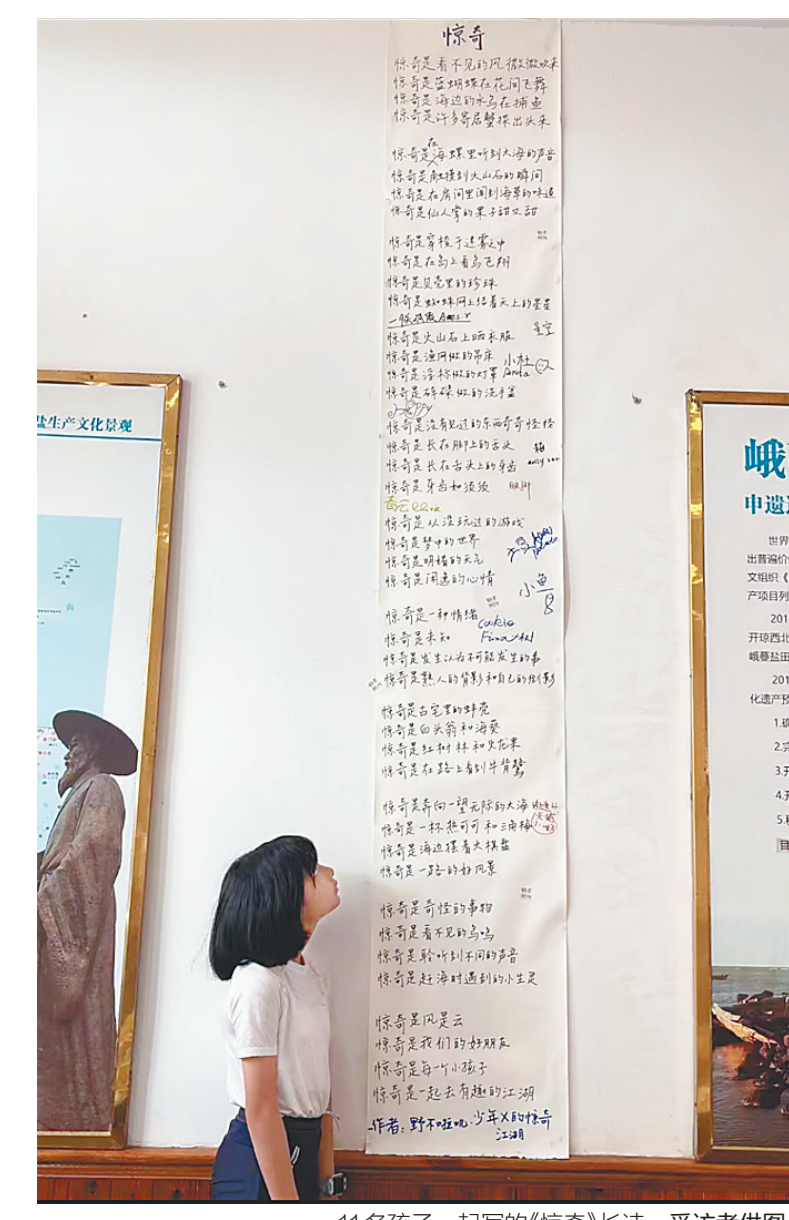 惊奇
惊奇是看不见的风微微吹来
惊奇是蓝蝴蝶在花间飞舞
惊奇是海边的水鸟在捕鱼
惊奇是许多寄居蟹探出头来
惊奇是在海螺里听到大海的声音
惊奇是触摸到火山石的瞬间
惊奇是在房间里闻到海草的味道
惊奇是仙人掌的果子甜又甜
惊奇是穿梭于迷雾之中
惊奇是在岛上看鸟飞翔
惊奇是贝壳里的珍珠
惊奇是蜘蛛网上结着天上的星星
惊奇是火山石上晒衣服
星空
惊奇是渔网做的吊床
小杜
Anita
惊奇是浮标做的灯罩
惊奇是砗磲做的洗手盆
惊奇是没有见过的东西奇奇怪怪
惊奇是长在脚上的舌头
惊奇是长在舌头上的牙齿
惊奇是牙齿如须须
惊奇是从没玩过的游戏
惊奇是梦中的世界
惊奇是明媚的天气
惊奇是闲适的心情
小鱼
8
惊奇是一种情绪
Cookie
惊奇是未知
惊奇是发生认为不可能发生的事
惊奇是熟人的背影和自己的倒影
惊奇是古宅里的蚌壳
惊奇是白头翁和海葵
惊奇是红树林和火龙果
惊奇是在路上看到牛背鹭
惊奇是奔向一望无际的大海
惊奇是一杯热可可和三角梅
惊奇是海边摆着大棋盘
惊奇是一路的好风景
惊奇是奇怪的事物
惊奇是看不见的鸟鸣
惊奇是聆听到不同的声音
惊奇是赶海时遇到的小生灵
惊奇是风是云
惊奇是我们的好朋友
惊奇是每一个小孩子
惊奇是一起去有趣的江湖
作者：野不啦叽·少年X的惊奇江湖
盐生产文化景观
南
峨
申遗
世界
出普遍价
文组织《
产项目列
201
开琼西北
峨蔓盐田
201
化遗产预
1.
2.
3.开
4.
5.
目
11名孩子一起写的《惊奇》长诗。受访者供图